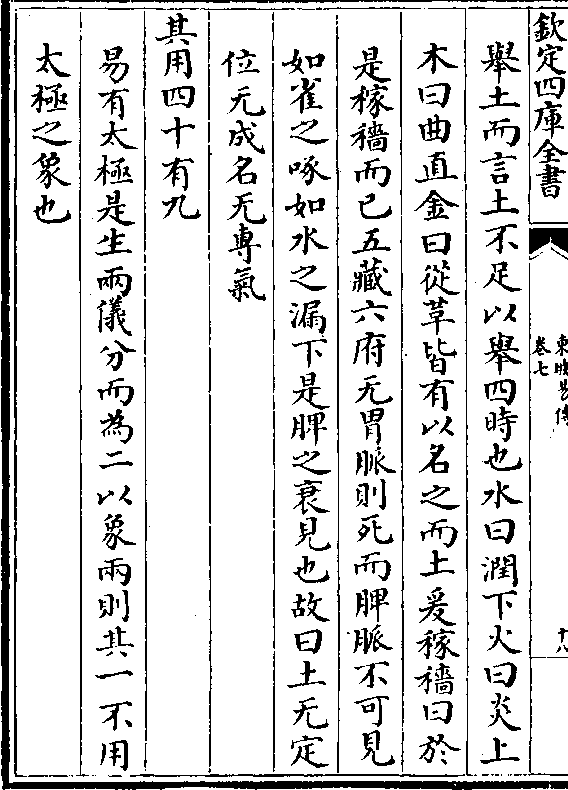 欽定四庫全書
東坡易傳
卷七
十八
舉土而言土不足以舉四時也水曰潤下火曰炎上
木曰曲直金曰從革皆有以名之而土爰稼穡曰於
是稼穡而已五藏六府无胃脈則死而脾脈不可見
如雀之啄如水之漏下是脾之衰見也故曰土无定
位无成名无專氣
其用四十有九
易有太極是生兩儀分而為二以象兩則其一不用
太極之象也